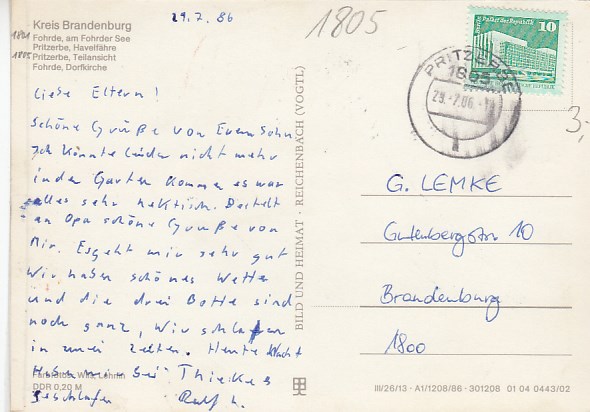 29.7.86
1805
Kreis Brandenburg
1801 Fohrde, am Fohrder See
Pritzerbe, Havelfähre
1805 Pritzerbe, Teilansicht
Fohrde, Dorfkirche
Liebe Eltern!
Schöne Grüße von Euren Sohn
Ich könnte leider nicht mehr
in den Garten kommen es war
alles sehr hektisch. Bestellt
an Opa schöne Grüße von
Mir. Es geht mir sehr gut
Wir haben schönes Wetter
und die drei Botte sind
noch ganz, Wir schlafen
in zwei Zelten. Heute Nacht
Haben wir bei Thiekes
geschlafen Ralf L.
DDR 0,20 M
BILD UND HEIMAT · REICHENBACH (VOGTL)
Palast der Republik
10
PRITZERBE
1805
29.-7.86
3,-
G. LEMKE
Gutenbergstr 10
Brandenburg
1800
III/26/13 · A1/1208/86 · 301208 01 04 0443/02